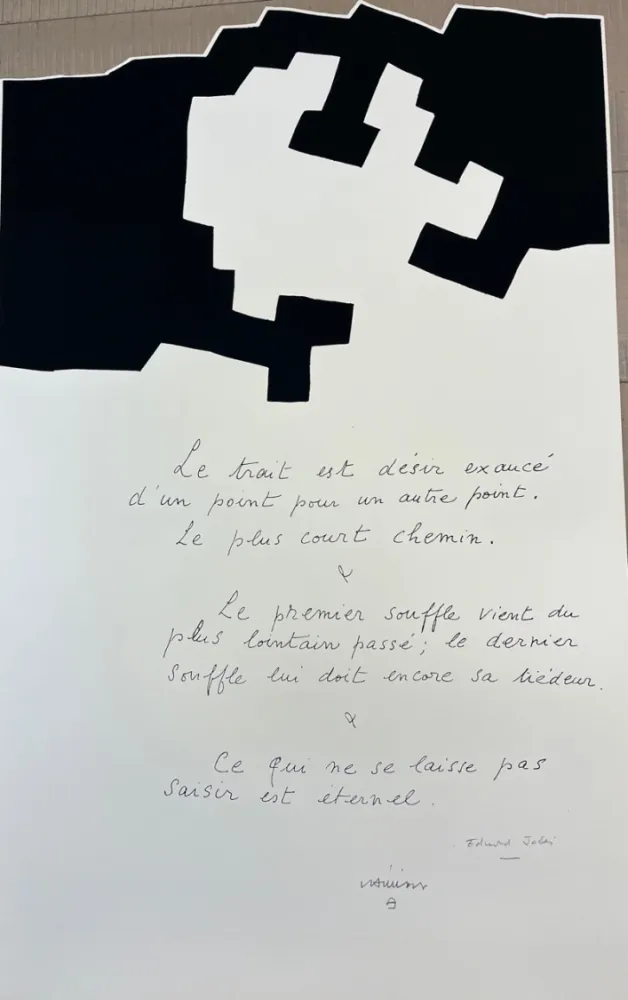 Le trait est désir exaucé
d'un point pour un autre point.
Le plus court chemin.
Le premier souffle vient du
plus lointain passé ; le dernier
souffle lui doit encore sa tiédeur.
Ce qui ne se laisse pas
saisir est éternel.